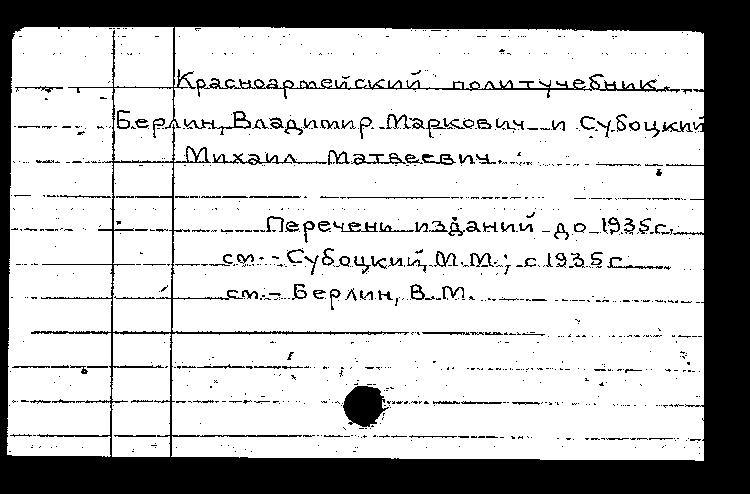 Красноармейский политучебник.
Берлин, Владимир Маркович и Субоцкий
Михаил Матвеевич.
Перечени изданий до 1935г.
см.- Субоцкий, М.М.; с 1935г
см.- Берлин, В.М.